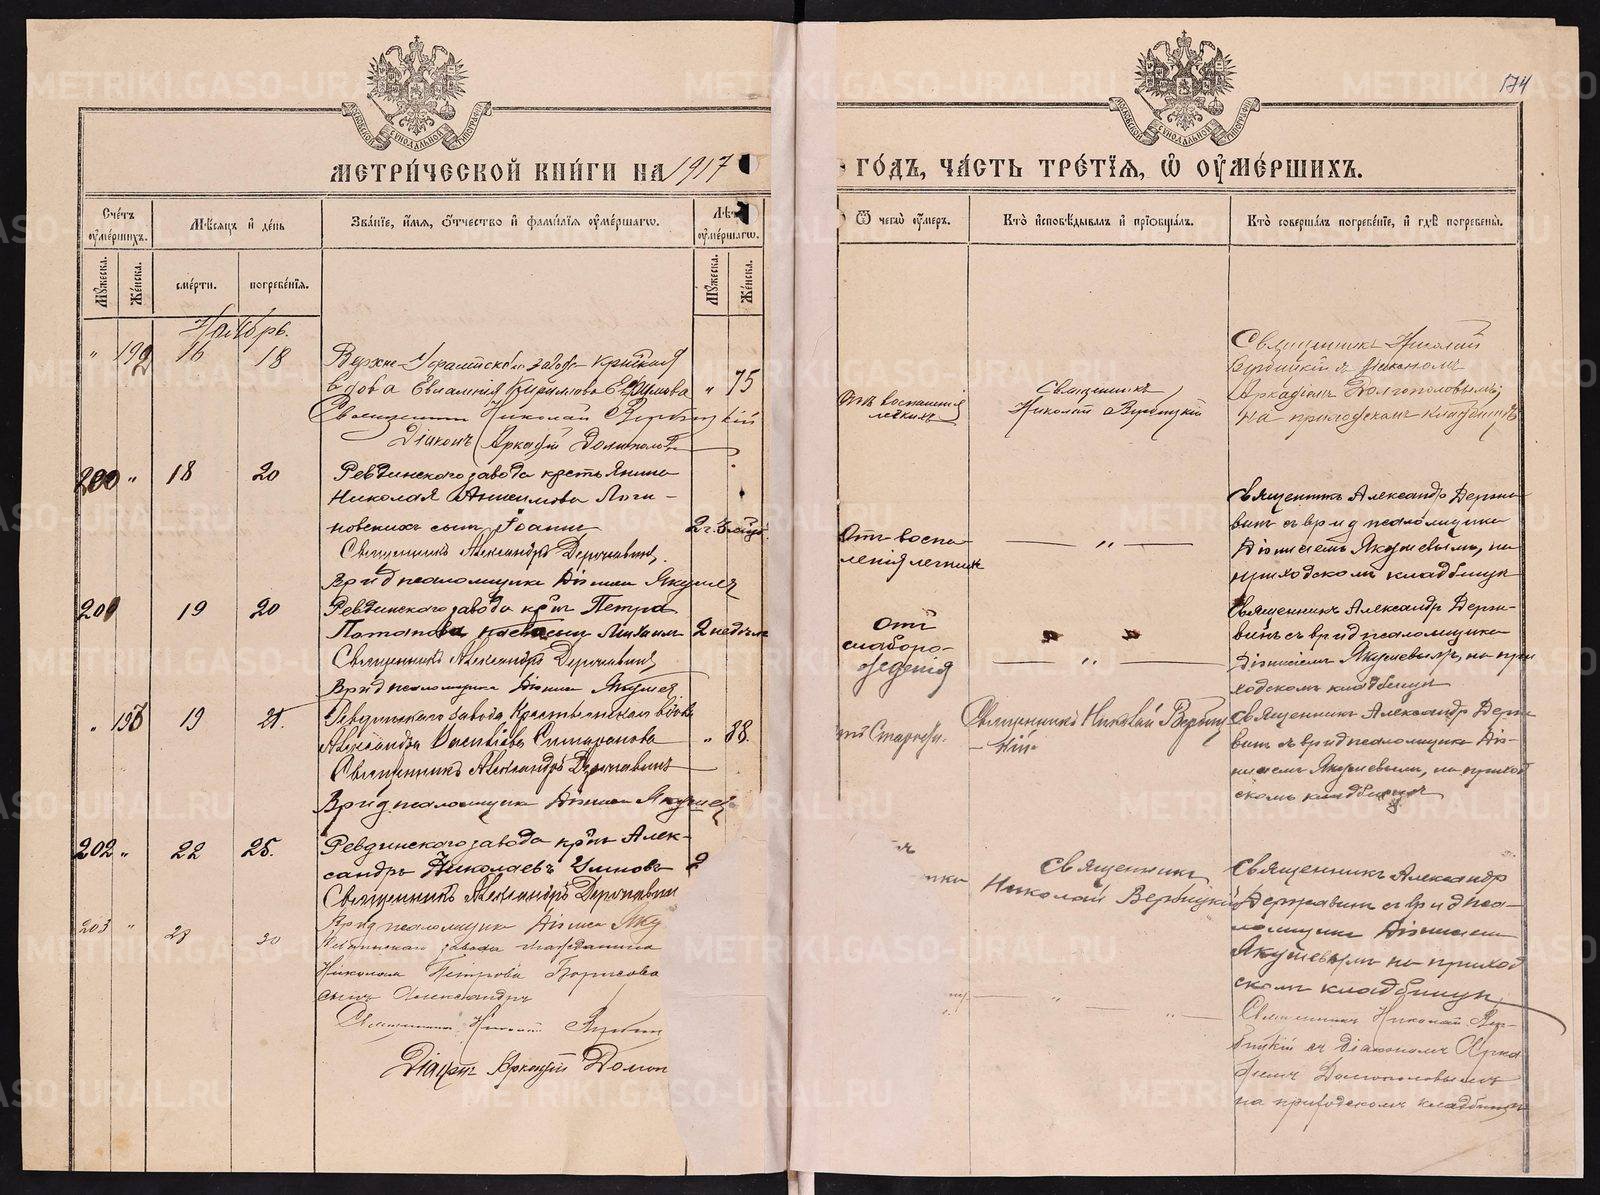 174
МЕТРИ́ЧЕСКОЙ КНИ́ГИ НА 1917
ГО́ДЪ, ЧА́СТЬ ТРЕ́ТІЯ, Ѿ ОУ҆МЕ́РШИХЪ.
Сче́тъ оу҆ме́ршихъ.
Мѣ́сяцъ и де́нь
Зва́ніе, и҆́мя, о҆́тчество и҆ фами́лія оу҆ме́ршагѡ.
Лѣ́та оу҆ме́ршагѡ.
Ѿ чегѡ̀ оу҆́меръ.
Кто̀ и҆сповѣ́дывалъ и҆ пріобща́лъ.
Кто̀ соверша́лъ погребе́ніе, и҆ гдѣ̀ погребены̀.
Му́жеска. Же́нска.
сме́рти. погребе́нія.
Му́жеска. Же́нска.
Ноябрь.
" 199 16 18
Верхне-Уфалейскаго завода
вдова Евлампія Кирилова " 75
Священникъ Николай Вербицкій
Діаконъ Аркадій Долгополовъ
Отъ воспаленія
легкихъ
Священникъ
Николай Вербицкій
Священникъ Николай
Вербицкій съ діакономъ
Аркадіемъ Долгополовымъ;
на приходскомъ кладбищѣ
200 " 18 20
Ревдинскаго завода крестьянина
Николая Анисимова Логи-
новскихъ сынъ Іоаннъ
Священникъ Александръ Державинъ,
Врид псаломщика Діонисій Якушевъ
Отъ воспа-
ленія легкихъ
— " —
Священникъ Александръ Держа-
винъ съ врид псаломщика
Діонисіемъ Якушевымъ, на
приходскомъ кладбищѣ
201 19 20
Ревдинскаго завода кр-нъ Петра
Потапова сынъ Михаилъ 2 недѣли
Священникъ Александръ Державинъ
Врид псаломщика Діонисій Якушевъ
Отъ
слаборо-
жденія
— " —
Священникъ Александръ Держа-
винъ съ врид псаломщика
Діонисіемъ Якушевымъ, на при-
ходскомъ кладбищѣ
" 193 19 21.
Ревдинскаго завода, Крестьянская вдова
Александра Васильева " 88.
Священникъ Александръ Державинъ
Врид псаломщика Діонисій Якушевъ
Старости.
Священникъ Николай Вербиц-
кій.
Священникъ Александръ Держа-
винъ съ врид псаломщика Діо-
нисіемъ Якушевымъ, на приход-
скомъ кладбищѣ
202 " 22 25.
Ревдинскаго завода кр-нъ Алек-
сандръ Николаевъ Умновъ 2
Священникъ Александръ Державинъ
Врид псаломщика Діонисій Яку
Священникъ
Николай Вербицкій
Священникъ Александръ
Державинъ съ врид пса-
ломщика Діонисіемъ
Якушевымъ на приход-
скомъ кладбищѣ
203 " 28 30
завода гражданина
Николая Петрова Борисова
сынъ Александръ
Священникъ Николай Вербиц
Діаконъ Аркадій Долгоп
— " — " —
Священникъ Николай Вер-
бицкій съ діакономъ Арка-
діемъ Долгополовымъ
на приходскомъ кладбищѣ
METRIKI.GASO-URAL.RU